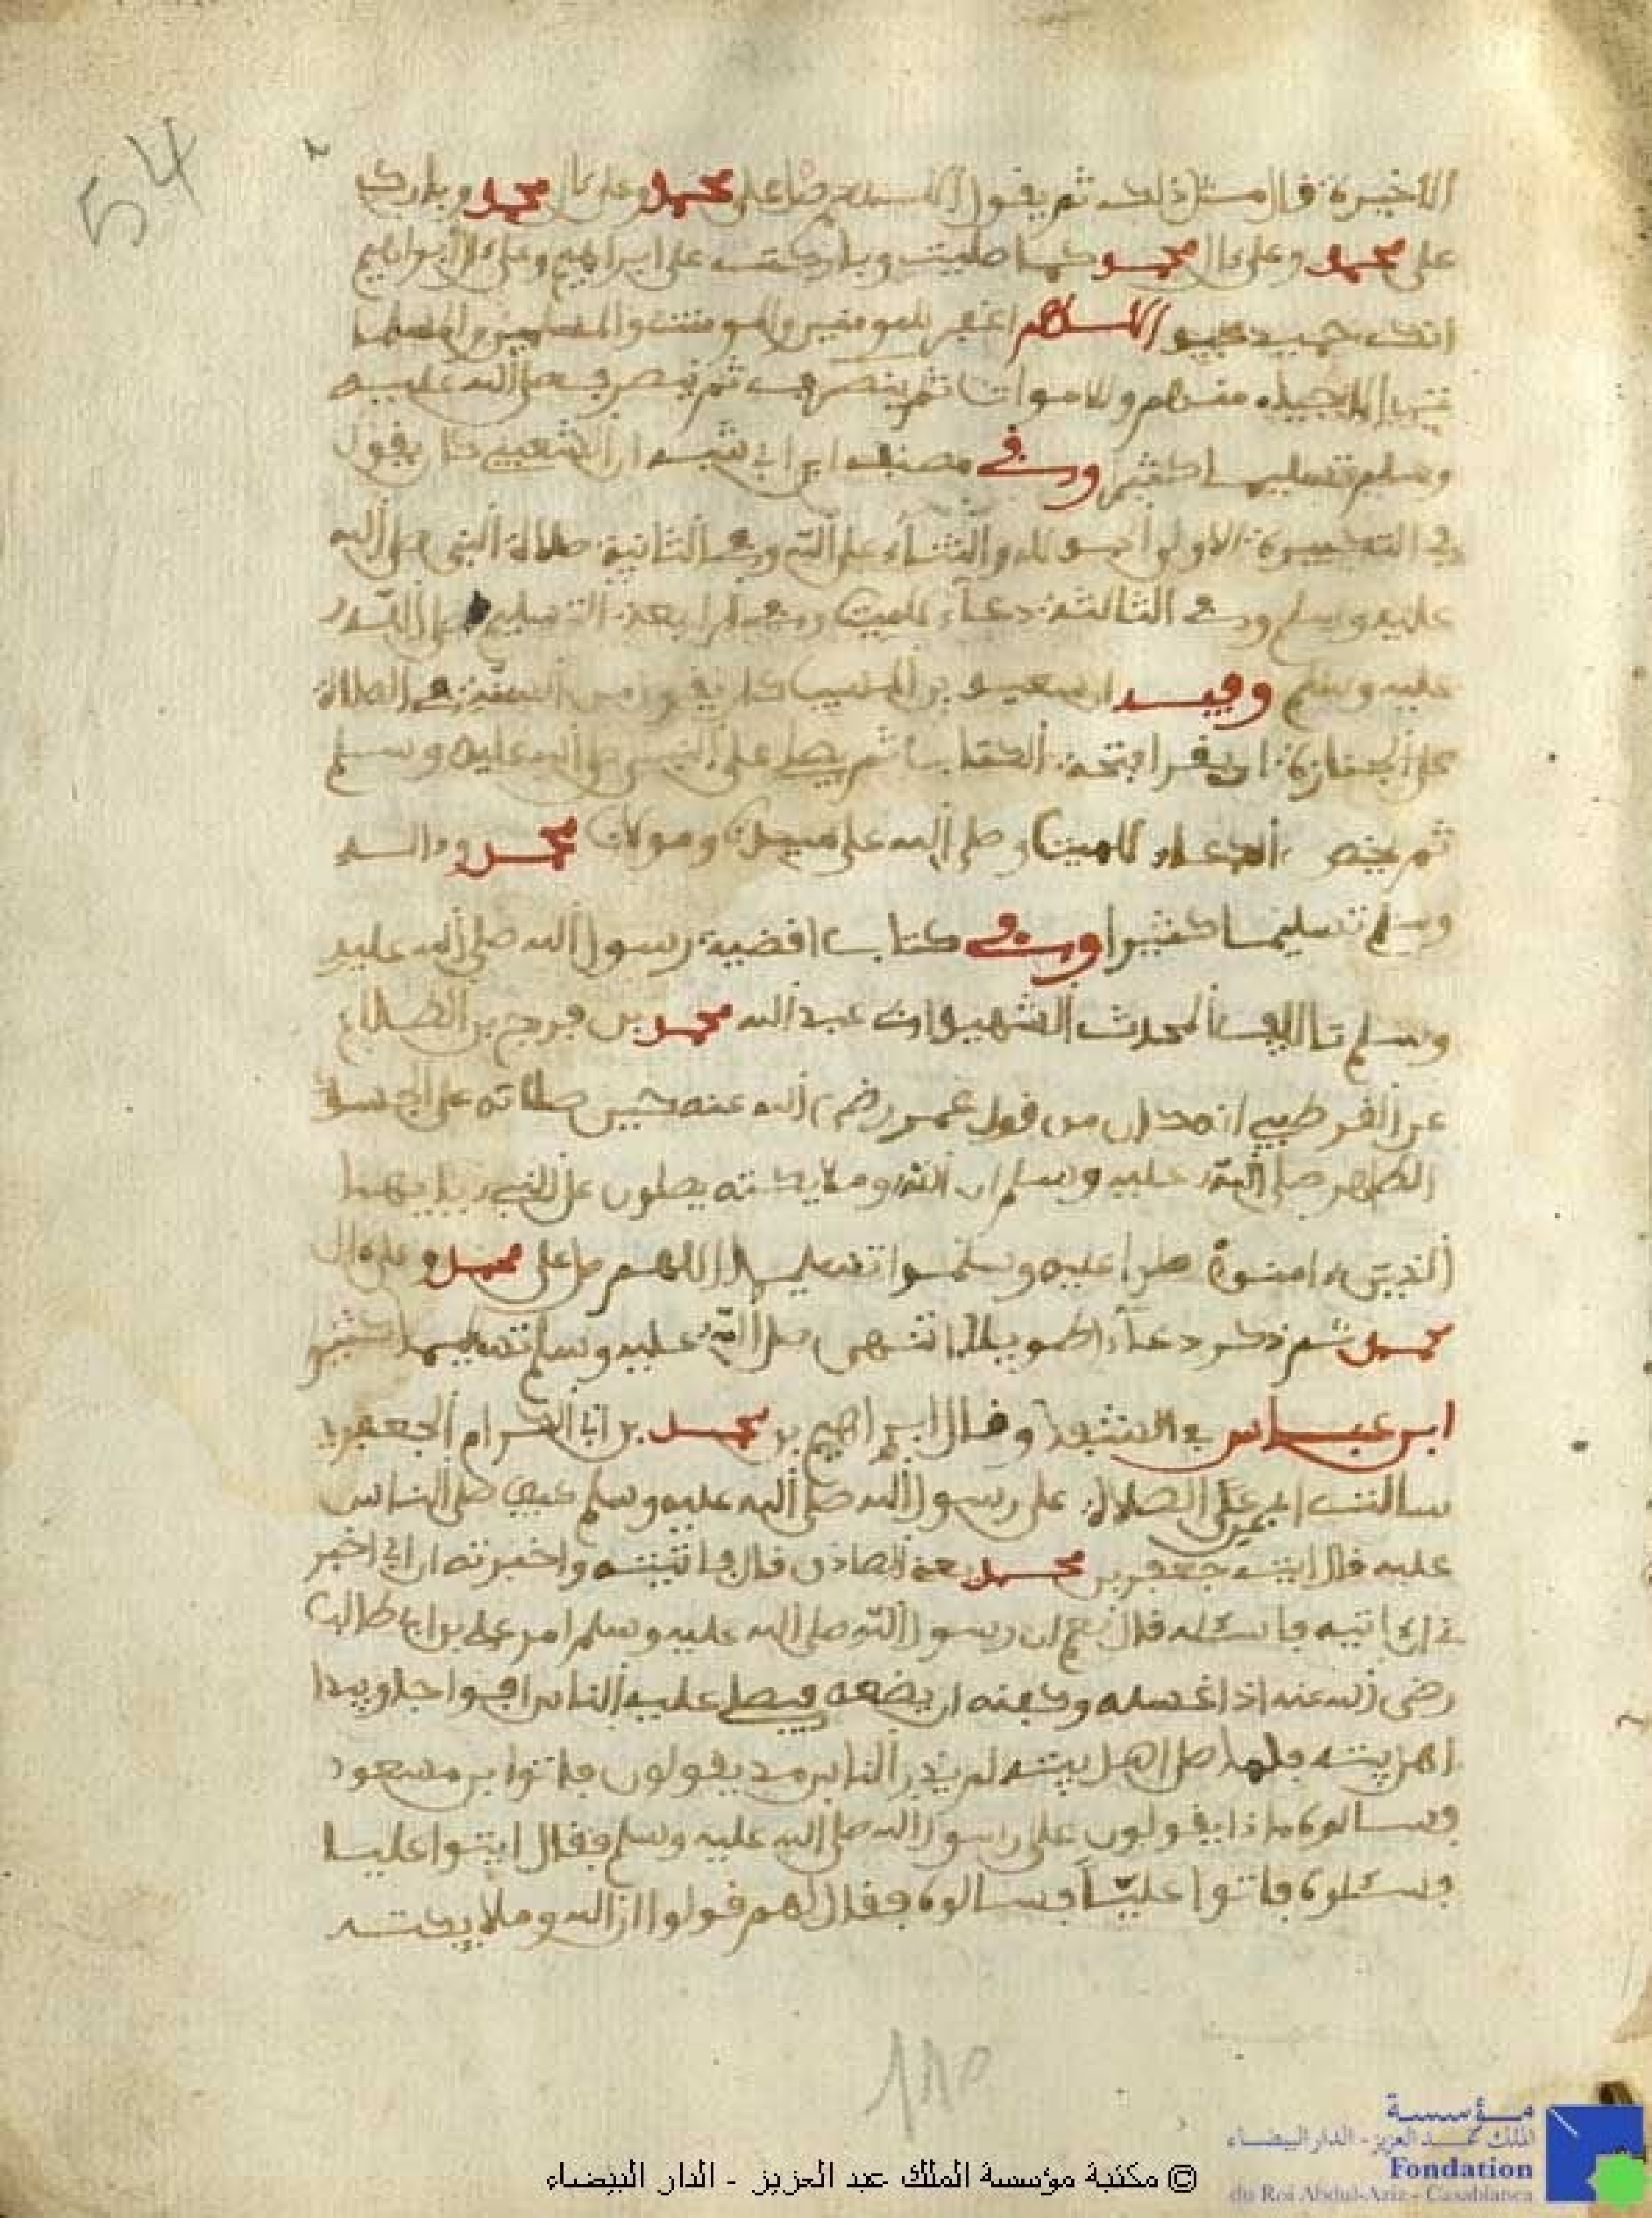 54
الاخيرة قال مثل ذلك ثم يقول اللهم صل على محمد وعلى ءال محمد وبارك
على محمد وعلى ءال محمد كما صليت وباركت على ابراهيم وعلى ءال ابراهيم
انك حميد مجيد اللهم اغفر للمومنين والمومنت والمسلمين والمسلما
ت الاحياء منهم والاموات ثم ينصرف صلى الله عليه
وسلم تسليما كثيرا وفي مصنف ابن ابي شيبه ان الشعبي كان يقول
في التكبيرة الاولى الحمد لله والثناء على الله وفي الثانية صلاة النبي صلى الله
عليه وسلم وفي الثالثة دعاء للميت وفي الرابعة التسليم صلى الله
عليه وسلم وفيه ان سعيد بن المسيب كان يقول من السنة في الصلاة
على الجنازة ان يقرا بفتحة الكتاب ثم يصلي على النبي صلى الله عليه وسلم
ثم يخص الدعاء للميت وصلى الله على سيدنا ومولانا محمد وءاله
وسلم تسليما كثيرا وفي كتاب اقضية رسول الله صلى الله عليه
وسلم تاليف المحدث الشهير ابي عبد الله محمد بن فرج بن الطلاع
عن القرطبي انه كان من قول عمر رضي الله عنه حين صلاته على الجسد
الطاهر صلى الله عليه وسلم ان الله وملايكته يصلون على النبي يا ايها
الذين ءامنوا صلوا عليه وسلموا تسليما اللهم صل على محمد وعلى ءال
محمد ثم ذكر دعاء طويلا انتهى صلى الله عليه وسلم تسليما كثيرا
ابن عباس في التشهد وقال ابراهيم بن محمد بن ابي الكرام الجعفري
سالت ابي عن الصلاة على رسول الله صلى الله عليه وسلم كيف صلى الناس
عليه قال ايت جعفر بن محمد يعني الصادق قال فاتيته واخبرته ان ابي اخبر
ني ان اتيه فاسئله قال نعم ان رسول الله صلى الله عليه وسلم امر علي بن ابي طالب
رضي الله عنه اذا غسله وكفنه ان يضعه فيصلي عليه الناس افواجا ويبدا
اهل بيته فلما صلى اهل بيته لم يدر الناس ما يقولون فاتوا بن مسعود
وسالوه ماذا يقولون على رسول الله صلى الله عليه وسلم فقال ايتوا عليا
وسئلوه فاتوا عليا فسالوه فقال لهم قولوا ان الله وملايكته
110
© مكتبة مؤسسة الملك عبد العزيز - الدار البيضاء
مؤسسة
الملك عبد العزيز - الدار البيضاء
Fondation
du Roi Abdul-Aziz - Casablanca